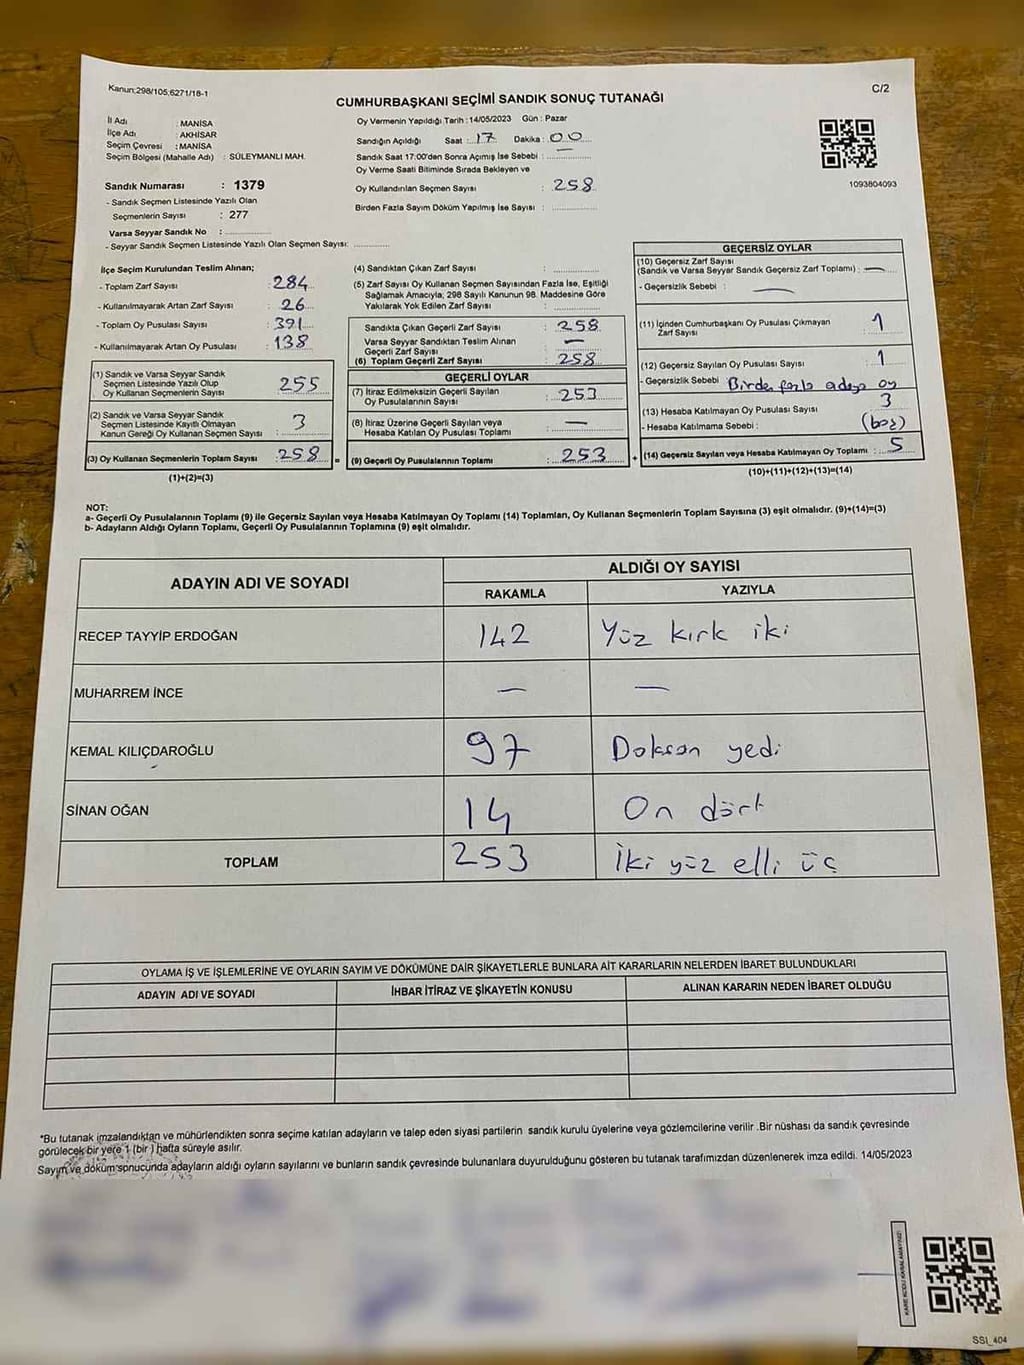 Kanun:298/105;6271/18-1
C/2
CUMHURBAŞKANI SEÇİMİ SANDIK SONUÇ TUTANAĞI
İl Adı : MANİSA
İlçe Adı : AKHİSAR
Seçim Çevresi : MANİSA
Seçim Bölgesi (Mahalle Adı) : SÜLEYMANLI MAH.
Sandık Numarası : 1379
- Sandık Seçmen Listesinde Yazılı Olan
Seçmenlerin Sayısı : 277
Varsa Seyyar Sandık No :
- Seyyar Sandık Seçmen Listesinde Yazılı Olan Seçmen Sayısı:
Oy Vermenin Yapıldığı Tarih : 14/05/2023 Gün : Pazar
Sandığın Açıldığı Saat : 17 Dakika : 00
Sandık Saat 17:00'dan Sonra Açımış İse Sebebi : —
Oy Verme Saati Bitiminde Sırada Bekleyen ve
Oy Kullandırılan Seçmen Sayısı : 258
Birden Fazla Sayım Döküm Yapılmış İse Sayısı :
1093804093
İlçe Seçim Kurulundan Teslim Alınan;
- Toplam Zarf Sayısı : 284
- Kullanılmayarak Artan Zarf Sayısı : 26
- Toplam Oy Pusulası Sayısı : 391
- Kullanılmayarak Artan Oy Pusulası : 138
(1) Sandık ve Varsa Seyyar Sandık
Seçmen Listesinde Yazılı Olup
Oy Kullanan Seçmenlerin Sayısı : 255
(2) Sandık ve Varsa Seyyar Sandık
Seçmen Listesinde Kayıtlı Olmayan
Kanun Gereği Oy Kullanan Seçmen Sayısı : 3
(3) Oy Kullanan Seçmenlerin Toplam Sayısı : 258
(1)+(2)=(3)
(4) Sandıktan Çıkan Zarf Sayısı :
(5) Zarf Sayısı Oy Kullanan Seçmen Sayısından Fazla İse, Eşitliği
Sağlamak Amacıyla; 298 Sayılı Kanunun 98. Maddesine Göre
Yakılarak Yok Edilen Zarf Sayısı :
Sandıkta Çıkan Geçerli Zarf Sayısı : 258
Varsa Seyyar Sandıktan Teslim Alınan
Geçerli Zarf Sayısı : —
(6) Toplam Geçerli Zarf Sayısı : 258
GEÇERLİ OYLAR
(7) İtiraz Edilmeksizin Geçerli Sayılan
Oy Pusulalarının Sayısı : 253
(8) İtiraz Üzerine Geçerli Sayılan veya
Hesaba Katılan Oy Pusulası Toplamı : —
= (9) Geçerli Oy Pusulalarının Toplamı : 253
GEÇERSİZ OYLAR
(10) Geçersiz Zarf Sayısı
(Sandık ve Varsa Seyyar Sandık Geçersiz Zarf Toplamı) : —
- Geçersizlik Sebebi : —
(11) İçinden Cumhurbaşkanı Oy Pusulası Çıkmayan
Zarf Sayısı : 1
(12) Geçersiz Sayılan Oy Pusulası Sayısı : 1
- Geçersizlik Sebebi : Birden fazla adaya oy
(13) Hesaba Katılmayan Oy Pusulası Sayısı : 3
- Hesaba Katılmama Sebebi : (boş)
+ (14) Geçersiz Sayılan veya Hesaba Katılmayan Oy Toplamı : 5
(10)+(11)+(12)+(13)=(14)
NOT:
a- Geçerli Oy Pusulalarının Toplamı (9) ile Geçersiz Sayılan veya Hesaba Katılmayan Oy Toplamı (14) Toplamları, Oy Kullanan Seçmenlerin Toplam Sayısına (3) eşit olmalıdır. (9)+(14)=(3)
b- Adayların Aldığı Oyların Toplamı, Geçerli Oy Pusulalarının Toplamına (9) eşit olmalıdır.
ADAYIN ADI VE SOYADI ALDIĞI OY SAYISI
RAKAMLA YAZIYLA
RECEP TAYYİP ERDOĞAN 142 Yüz kırk iki
MUHARREM İNCE — —
KEMAL KILIÇDAROĞLU 97 Doksan yedi
SİNAN OĞAN 14 On dört
TOPLAM 253 İki yüz elli üç
OYLAMA İŞ VE İŞLEMLERİNE VE OYLARIN SAYIM VE DÖKÜMÜNE DAİR ŞİKAYETLERLE BUNLARA AİT KARARLARIN NELERDEN İBARET BULUNDUKLARI
ADAYIN ADI VE SOYADI İHBAR İTİRAZ VE ŞİKAYETİN KONUSU ALINAN KARARIN NEDEN İBARET OLDUĞU
*Bu tutanak imzalandıktan ve mühürlendikten sonra seçime katılan adayların ve talep eden siyasi partilerin sandık kurulu üyelerine veya gözlemcilerine verilir .Bir nüshası da sandık çevresinde
görülecek bir yere 1 (bir ) hafta süreyle asılır.
Sayım ve döküm sonucunda adayların aldığı oyların sayılarını ve bunların sandık çevresinde bulunanlara duyurulduğunu gösteren bu tutanak tarafımızdan düzenlenerek imza edildi. 14/05/2023
KARE KODU KARALAMAYINIZ!
SSI_404